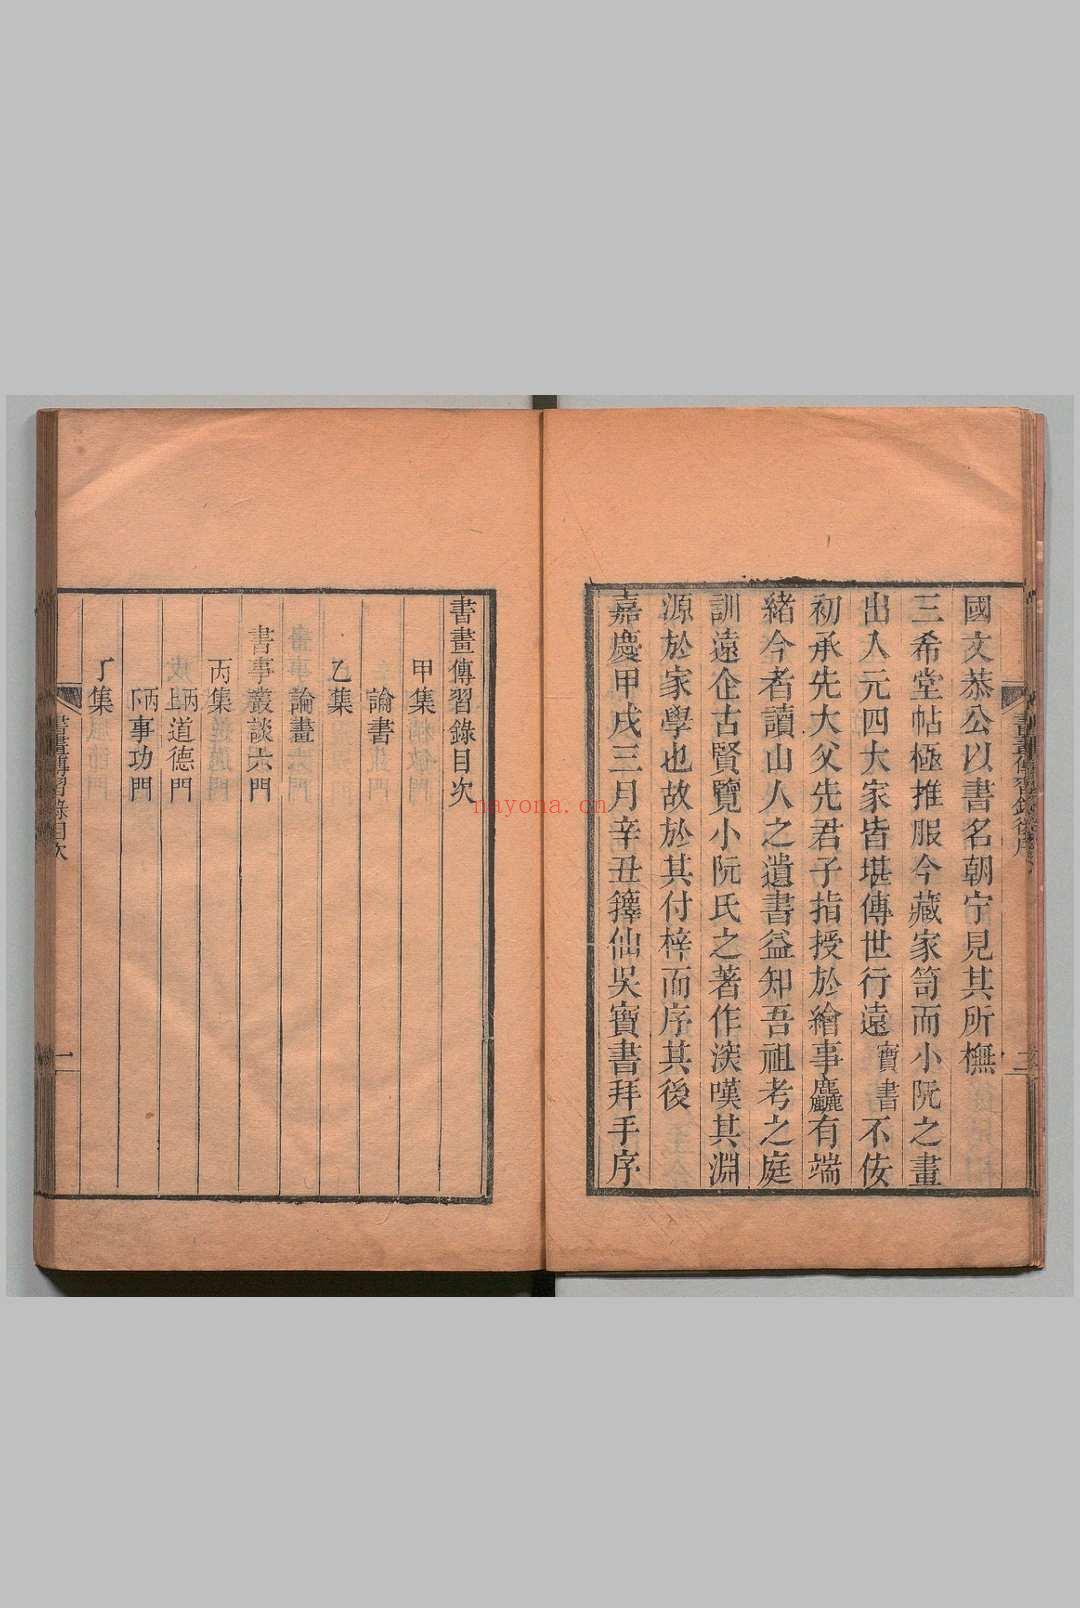 國文恭公以書名朝宁見其所橅
三希堂帖極推服今藏家笥而小阮之畫
出入元四大家皆堪傳世行遠寶書不佞
初承先大父先君子指授於繪事麤有端
緒今者讀山人之遺書益知吾祖考之庭
訓遠企古賢覽小阮氏之著作淡嘆其淵
源於家學也故於其付梓而序其後
嘉慶甲戌三月辛丑籜仙吳寶書拜手序
書畫傳習錄後序
二
書畫傳習錄目次
甲集
論書
乙集
論畫
書事叢談六門
丙集
丙上道德門
丙下事功門
丁集
書畫傳習錄目次
一
nayona.cn